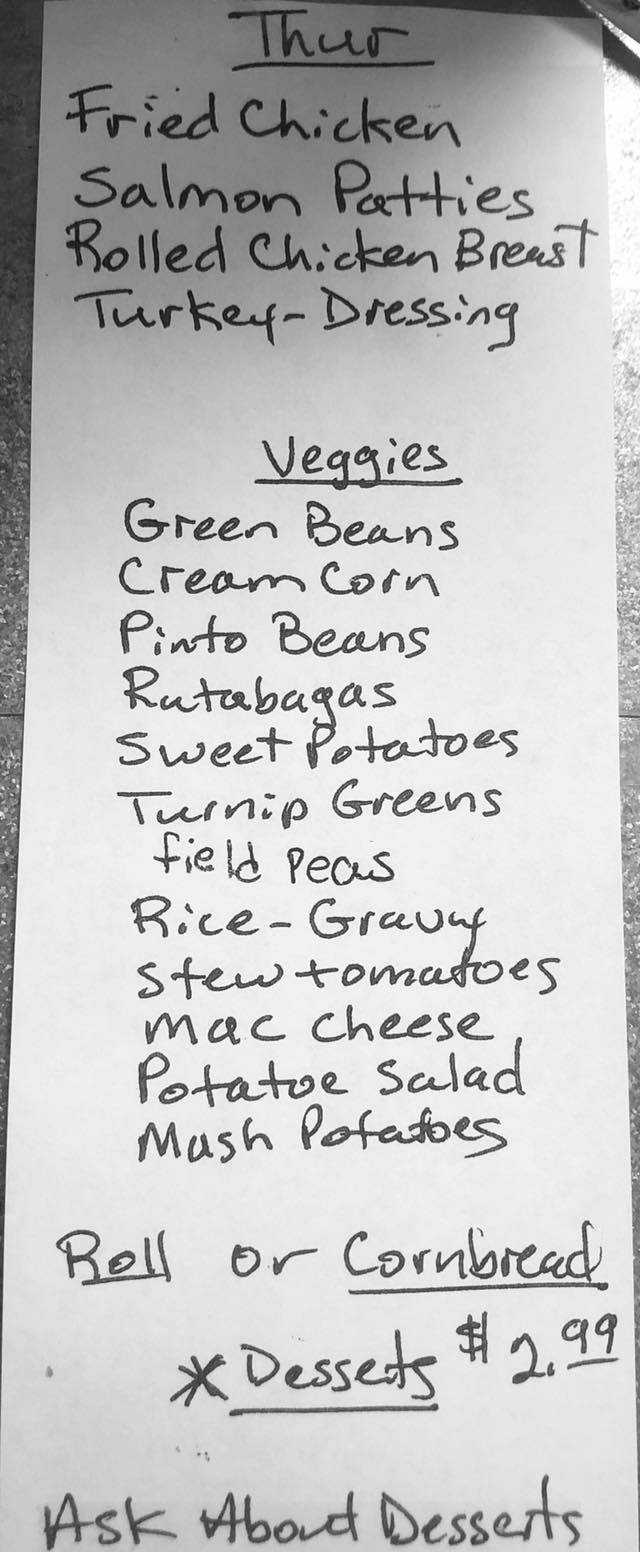 Thur
Fried Chicken
Salmon Patties
Rolled Chicken Breast
Turkey-Dressing
Veggies
Green Beans
Cream Corn
Pinto Beans
Rutabagas
Sweet Potatoes
Turnip Greens
field peas
Rice-Gravy
Stew tomatoes
Mac cheese
Potatoe Salad
Mash Potatoes
Roll or Cornbread
*Desserts $2.99
Ask About Desserts